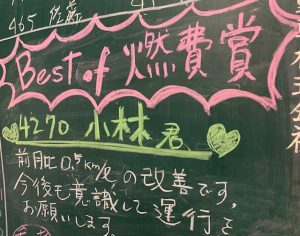 465 佐藤
Best of 燃費賞
4270 小林君
前月比0.5km/ℓの改善です。
今後も意識して運行を
お願いします。